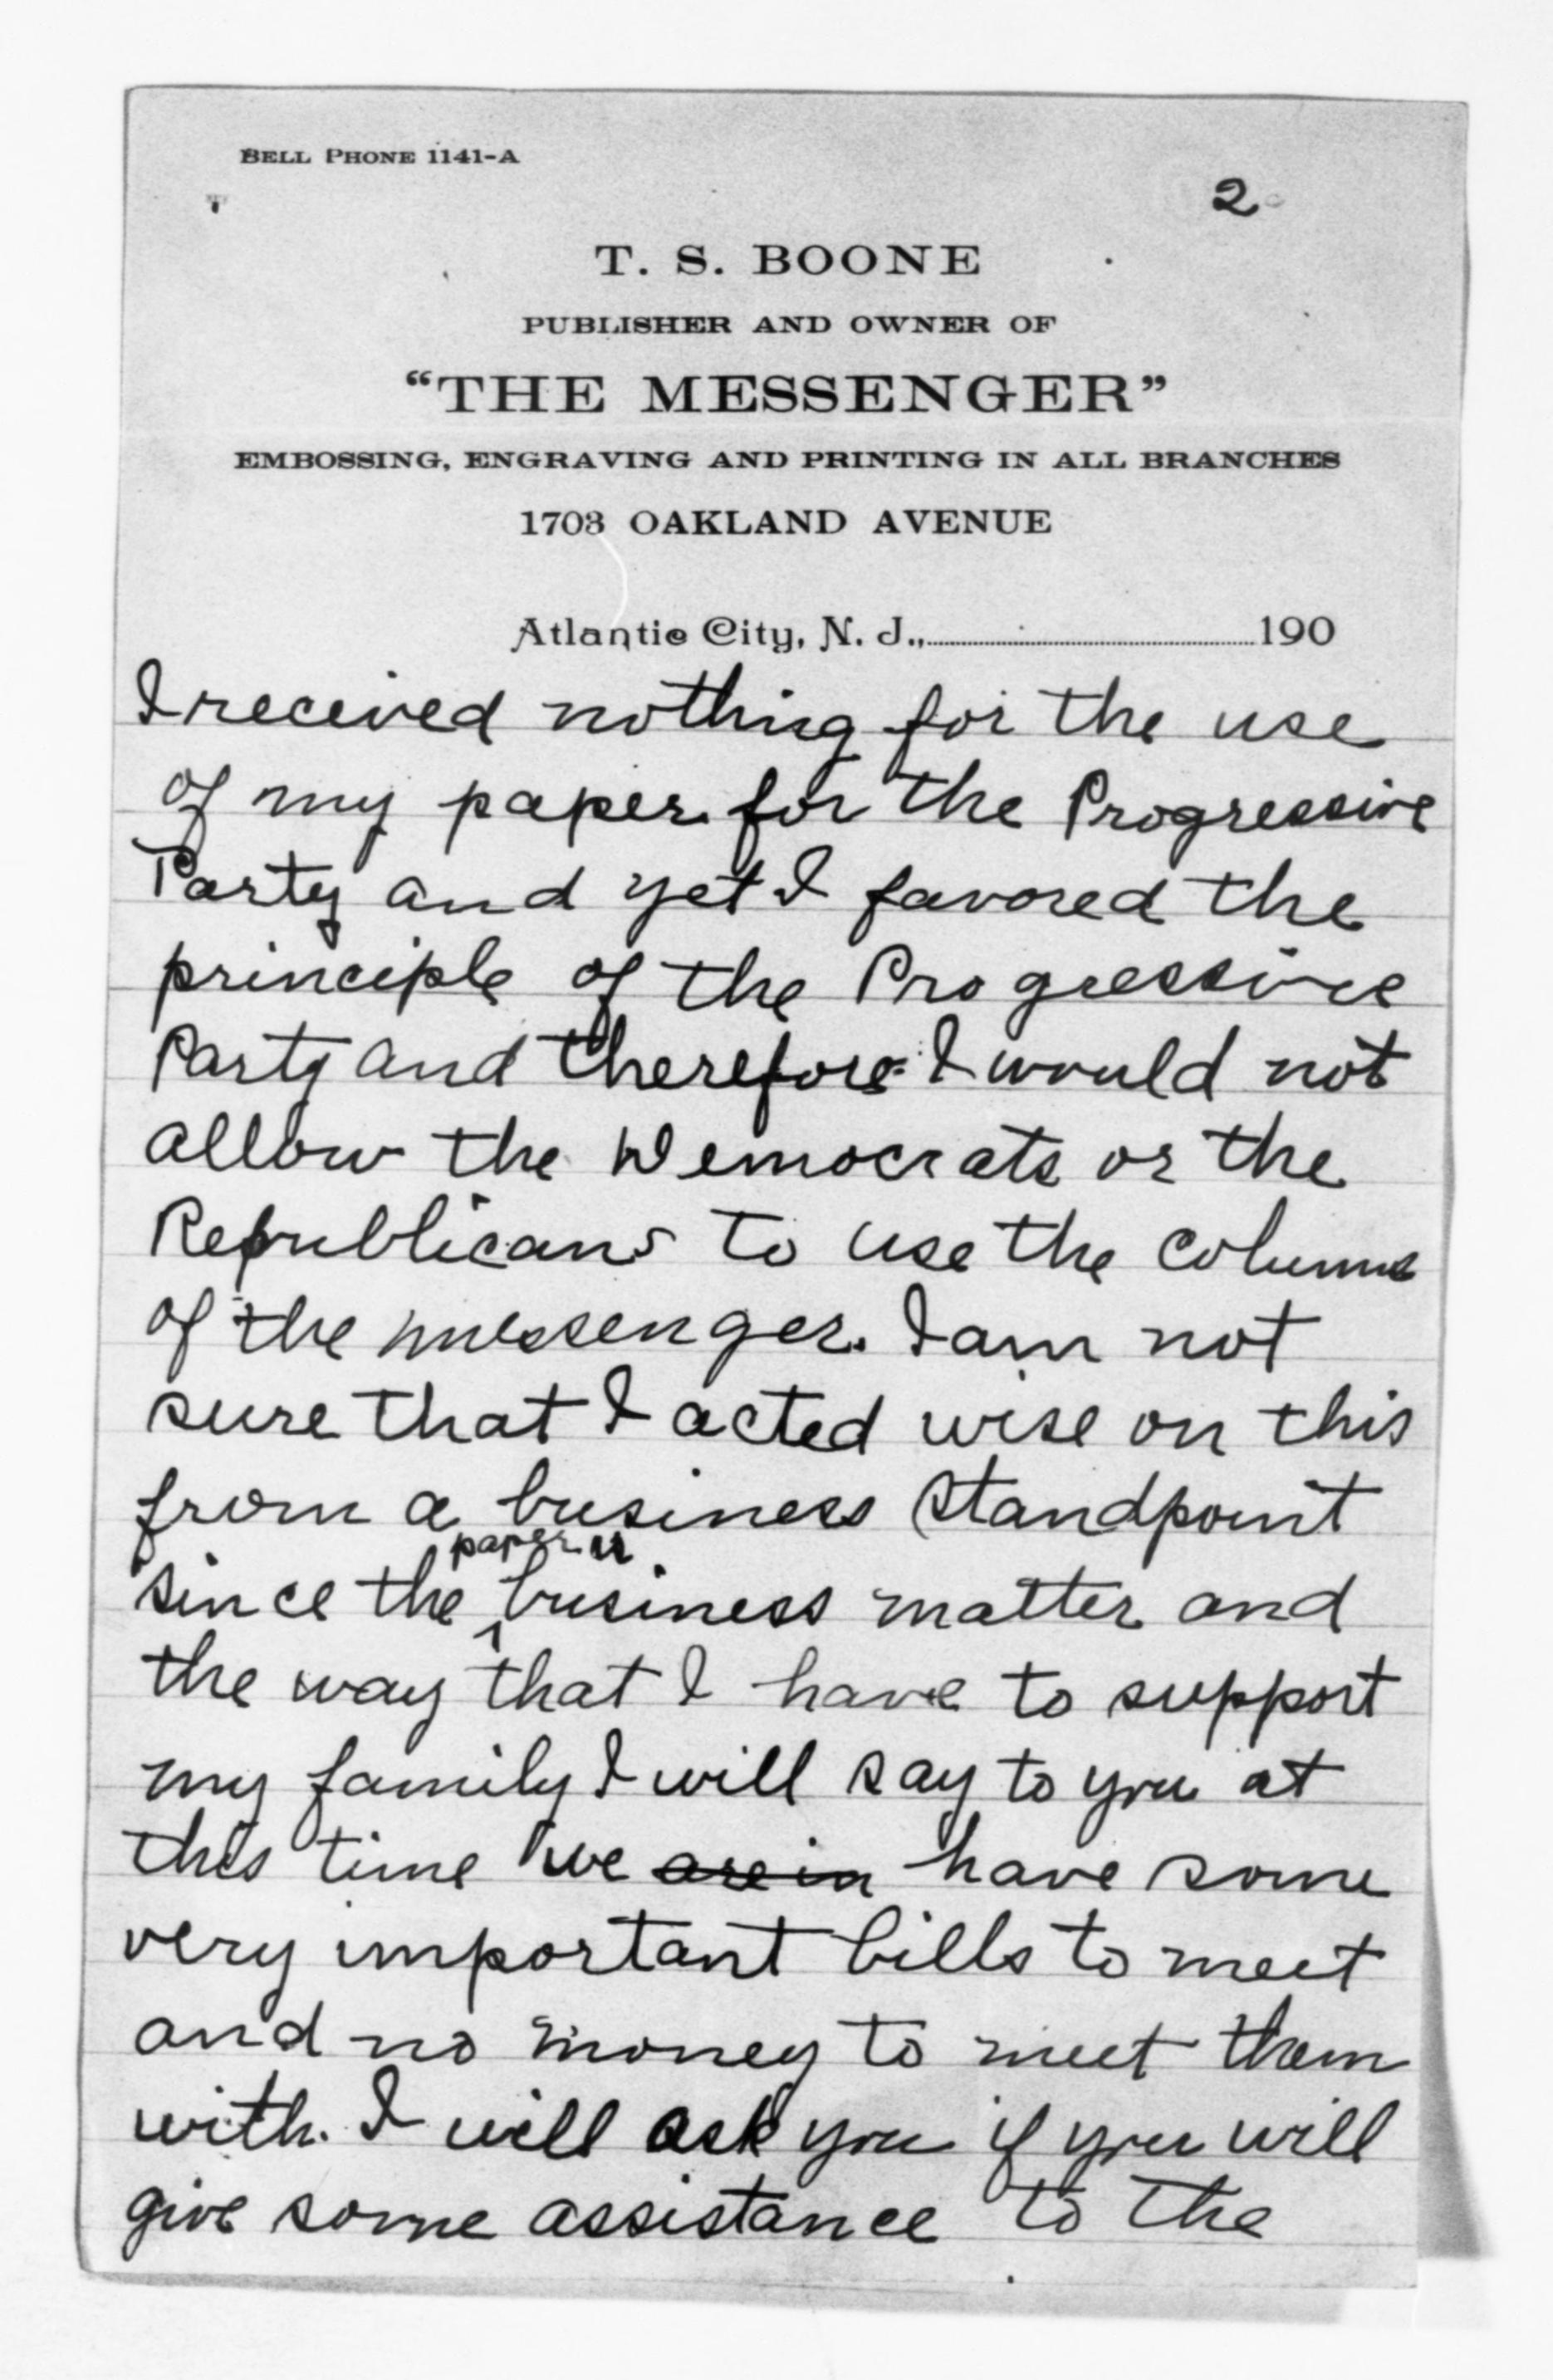 BELL PHONE 1141-A
2
T. S. BOONE
PUBLISHER AND OWNER OF
"THE MESSENGER"
EMBOSSING, ENGRAVING AND PRINTING IN ALL BRANCHES
1703 OAKLAND AVENUE
Atlantic City, N. J., 190
I received nothing for the use
of my paper for the Progressive
Party and yet I favored the
principle of the Progressive
Party and therefore I would not
allow the Democrats or the
Republicans to use the columns
of the messenger. I am not
sure that I acted wise on this
from a business standpoint
paper is
since the business matter and
the way that I have to support
my family I will say to you at
this time we are in have some
very important bills to meet
and no money to meet them
with. I will ask you if you will
give some assistance to the